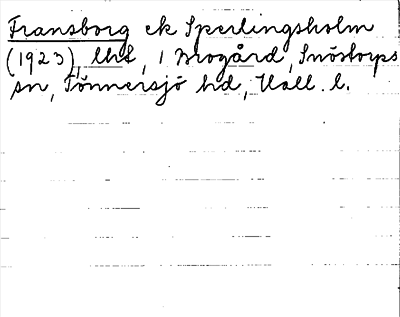 Fransborg ek Sperlingsholm
(1923), lht, 1 Brogård, Snöstorps
sn, Tönnersjö hd, Hall. l.